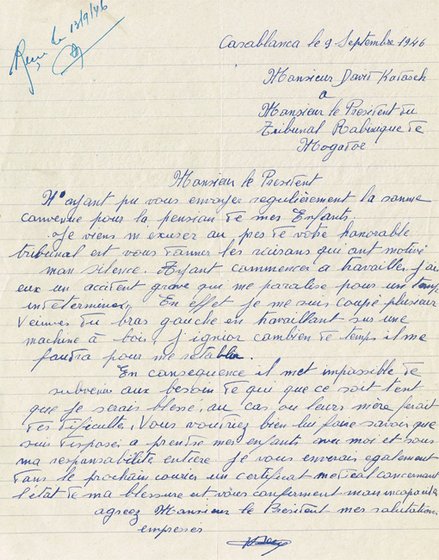 Reçu le 13/9/46
Casablanca le 9 Septembre 1946
Monsieur David
a
Monsieur le President du
Tribunal Rabinique de
Mogador
Monsieur le President
N'ayant pu vous envoyer regulièrement la somme
convenue pour la pension de mes Enfants.
Je viens m'excuser au pres de votre honorable
tribunal est vous donner les raisons qui ont motivé
mon silence. Ayant commencer a travailler j'ai
eux un accident grave qui me paralise pour un temps
indeterminer. En effet je me suis coupé plusieur
Veines du bras gauche en travaillant sur une
machine à bois. J'ignior combien de temps il me
faudra pour me retablir.
En consequence il met impossible de
subvenir aux besoin de qui que ce soit tent
que je serais blessé, au cas ou leurs mère ferait
des dificultes, Vous voudriez bien lui faire savoir que
suis disposer a prendre mes enfants avec moi et sous
ma responsabilite entiere. je vous enverais egalement
dans le prochain courier un certificat medical concernant
l'état de ma blessure est vous confirment mon incapacite
agreez Monsieur le President mes salutations
empreses